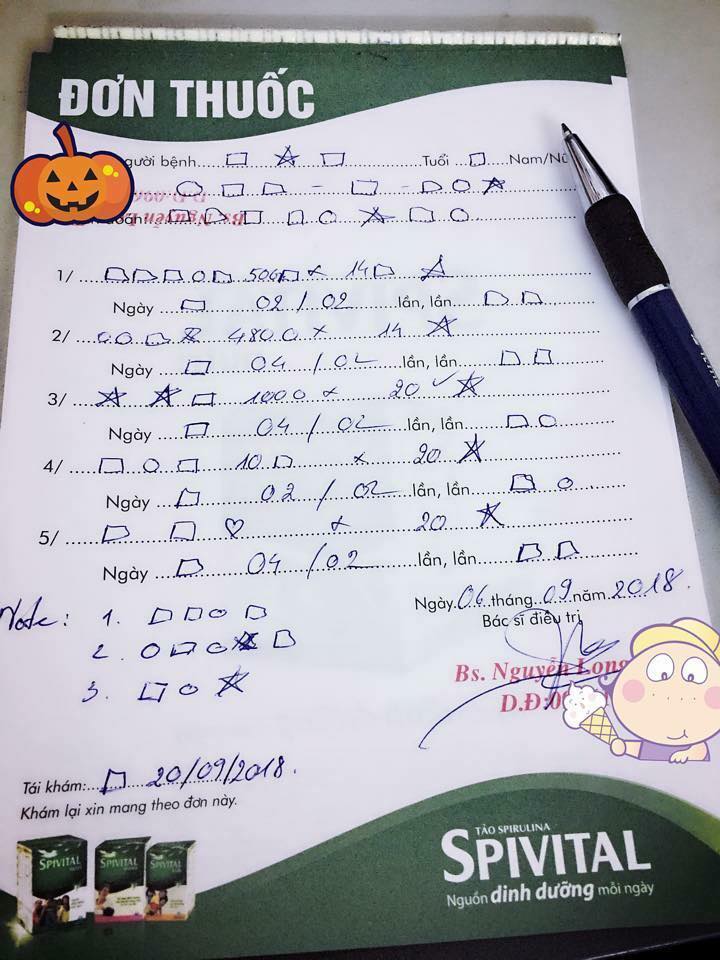 ĐƠN THUỐC
gười bệnh........ □ ☆ □ ........Tuổi ... □ ...Nam/Nữ
○ □ □ - □ - □ ○ ☆
□ □ □ □ ○ ☆ □ ○
Bs. Nguyễn
1/ □ □ □ ○ □ 500 □ x 14 □ ☆
Ngày ... □ 02 / 02 lần, lần □ □
2/ ○ ○ □ ☆ 480 ○ x 14 ☆
Ngày ... □ 04 / 02 lần, lần □ □
3/ ☆ ☆ □ 100 ○ x 20 ✓ ☆
Ngày ... □ 04 / 02 lần, lần □ ○
4/ □ ○ □ 10 □ x 20 ☆
Ngày ... □ 02 / 02 lần, lần □ ○
5/ □ □ ♡ x 20 ☆
Ngày ... □ 04 / 02 lần, lần □ □
Ngày 06 tháng 09 năm 2018.
Bác sĩ điều trị
Note: 1. □ □ ○ □
2. ○ □ ○ ☆ □
3. □ ○ ☆
Bs. Nguyễn Long
D.Đ:0
Tái khám: □ 20/09/2018.
Khám lại xin mang theo đơn này.
TẢO SPIRULINA
SPIVITAL
Nguồn dinh dưỡng mỗi ngày
SPIVITAL SPIVITAL SPIVITAL